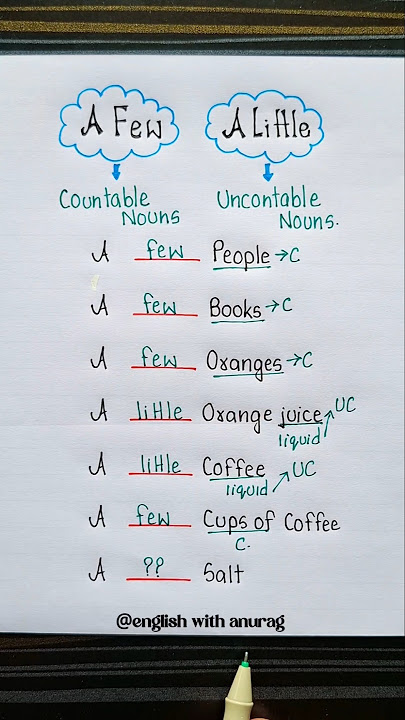 A Few A Little
Countable Nouns Uncontable Nouns.
A few People → C
A few Books → C
A few Oranges → C
A little Orange juice UC
liquid
A little Coffee UC
liquid
A few Cups of Coffee
C.
A ?? Salt
@english with anurag